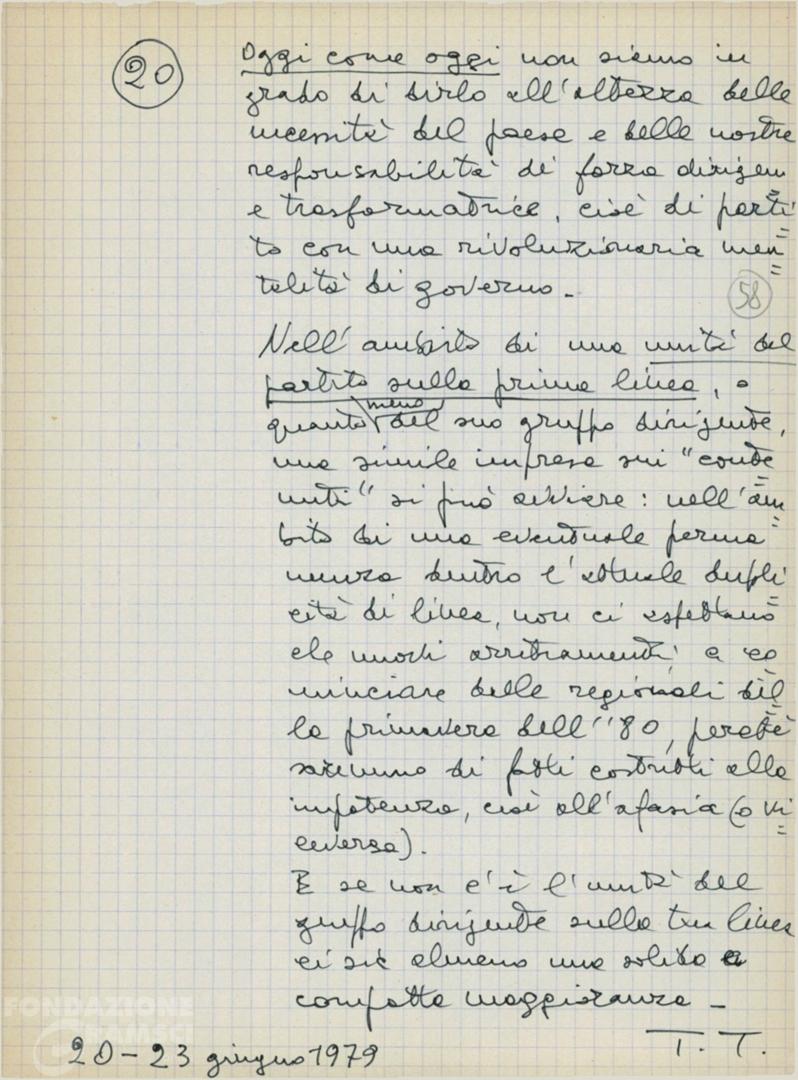 20
Oggi come oggi non siamo in
grado di dirlo all'altezza delle
necessità del paese e delle nostre
responsabilità di forza dirigen
e trasformatrice, cioè di parti=
to con una rivoluzionaria men=
talità di governo.
58
Nell'ambito di una unità del
partito sulla prima linea, o
quanto meno del suo gruppo dirigente,
una simile impresa sui "conte=
nuti" si può avviare: nell'am=
bito di una eventuale perma
nenza dentro l'attuale dupli=
cità di linea, non ci aspettano
che nuovi arretramenti, a co=
minciare dalle regionali del=
la primavera dell''80, perché
saremmo di fatto costretti alla
impotenza, cioè all'afasia (o vi=
ceversa).
E se non c'è l'unità del
gruppo dirigente sulla tua linea
ci sia almeno una solida e
compatta maggioranza -
T. T.
20-23 giugno 1979
FONDAZIONE
GRAMSCI